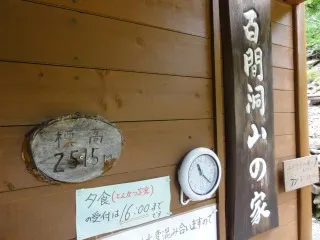 百間洞山の家
標高
2515m
夕食(とんかつ定食)
の受付は16:00まで
です
混み合いますので